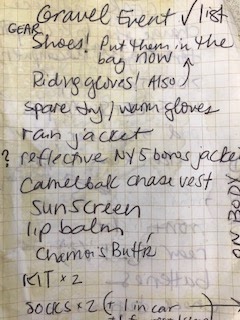 Gravel Event √ list
GEAR
Shoes! Put them in the
bag now
Riding gloves! Also ↑
spare dry / warm gloves
rain jacket
? reflective NY 5 boros jacket
Camelbak chase vest
sunscreen
lip balm
Chamois Buttr
KIT x 2
SOCKS x 2 (+ 1 in car
ON BODY